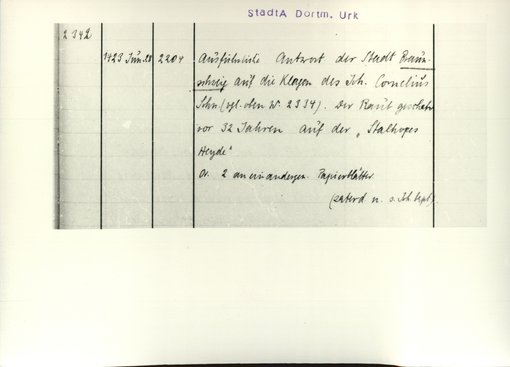 StadtA Dortm. Urk
2342
1423 Jun. 28 2204 Ausführliche Antwort der Stadt Braun-
schweig auf die Klagen des Joh. Cornelius
Sohn (vgl. oben N. 2334). Der Raub geschah
vor 32 Jahren auf der „Stalhopes
Heyde"
Or. 2 aneinandergen. Papierblätter
n. s. Joh. bapt.)